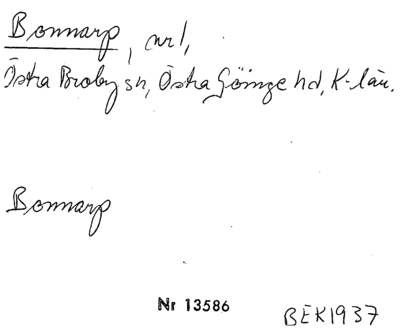 Bonnarp, nr 1,
Östra Broby sn, Östra Göinge hd, K-län.
Bonnarp
Nr 13586
BEK1937